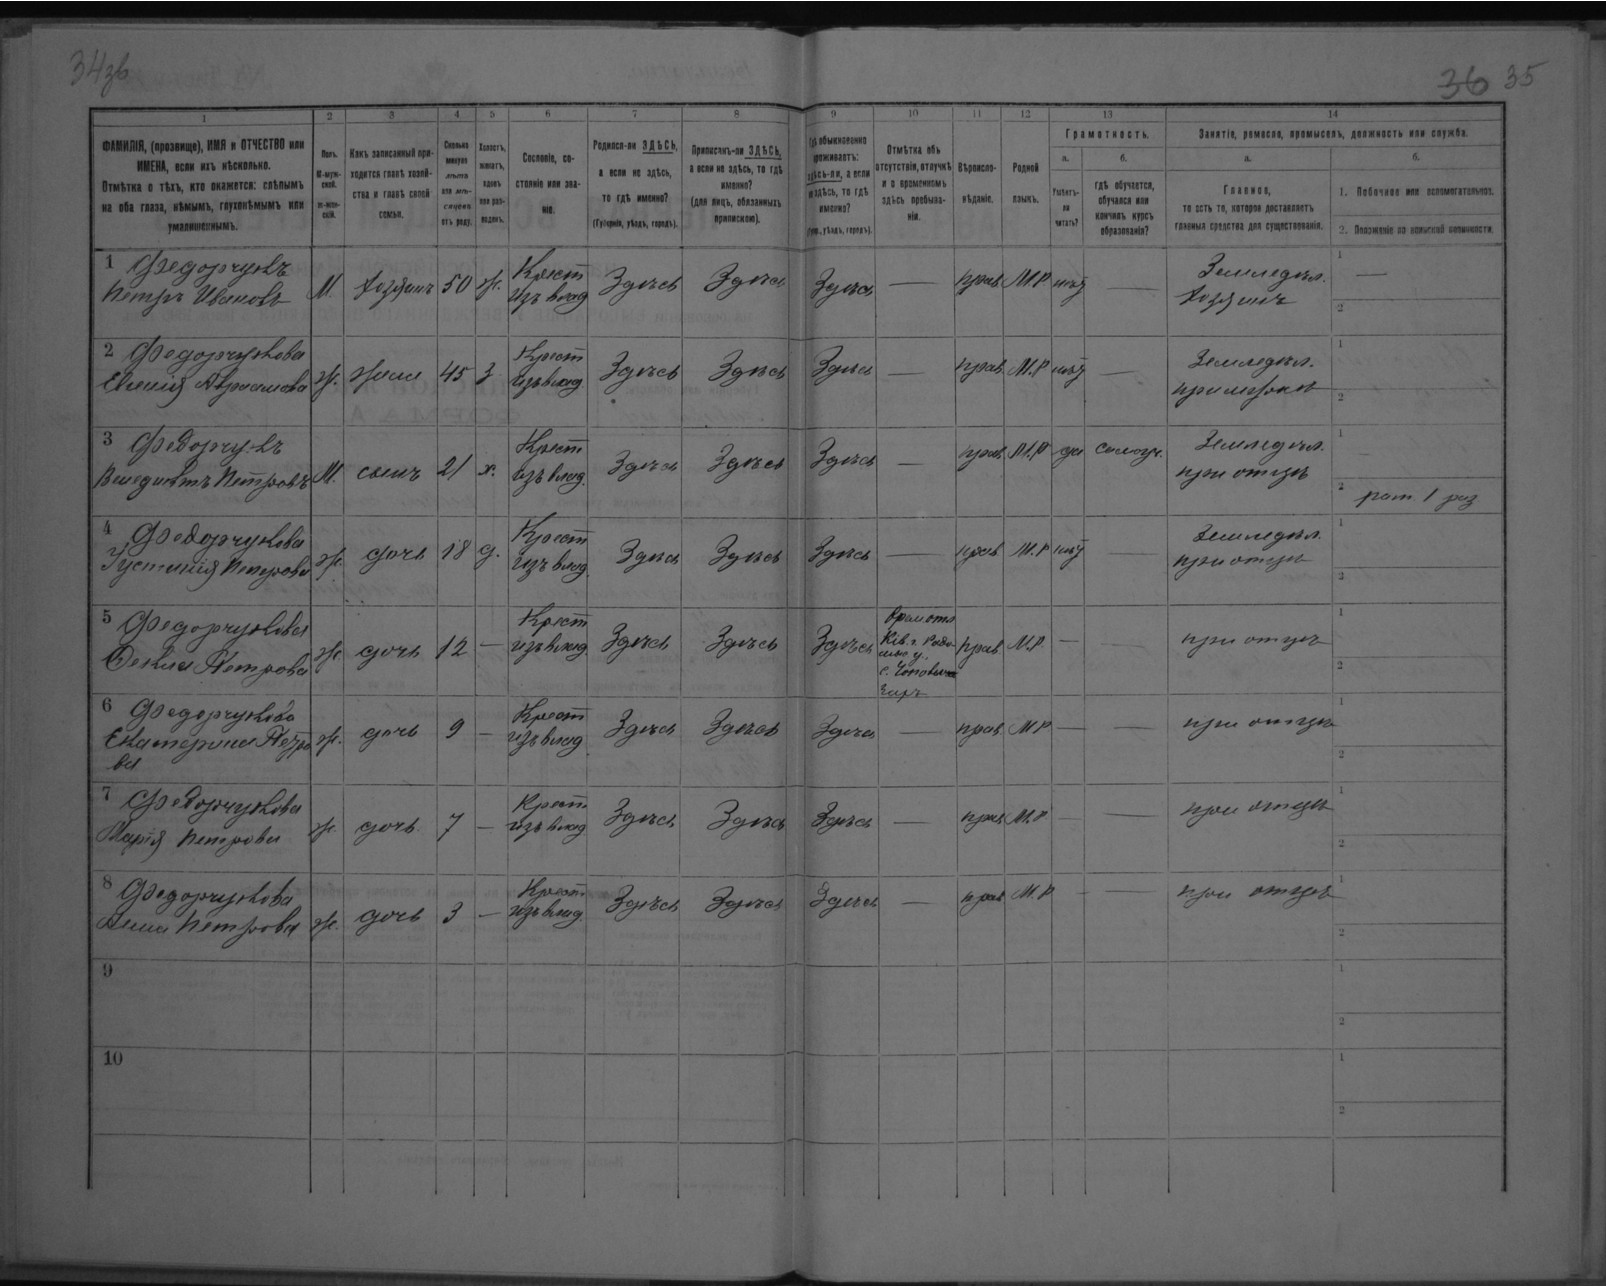 34зв
36 35
1
2
3
4
5
6
7
8
9
10
11
12
13
14
ФАМИЛІЯ, (прозвище), ИМЯ и ОТЧЕСТВО или
ИМЕНА, если ихъ нѣсколько.
Отмѣтка о тѣхъ, кто окажется: слѣпымъ
на оба глаза, нѣмымъ, глухонѣмымъ или
умалишеннымъ.
Полъ.
М-муж-
ской.
ж-жен-
скій.
Какъ записанный при-
ходится главѣ хозяй-
ства и главѣ своей
семьи.
Сколько
минуло
лѣтъ
или мѣ-
сяцевъ
отъ роду.
Холостъ,
женатъ,
вдовъ
или раз-
веденъ.
Сословіе, со-
стояніе или зва-
ніе.
Родился-ли ЗДѢСЬ,
а если не здѣсь,
то гдѣ именно?
(Губернія, уѣздъ, городъ).
Приписанъ-ли ЗДѢСЬ,
а если не здѣсь, то гдѣ
именно?
(для лицъ, обязанныхъ
припискою).
Гдѣ обыкновенно
проживаетъ:
здѣсь-ли, а если
не здѣсь, то гдѣ
именно?
(Губ., уѣздъ, городъ).
Отмѣтка объ
отсутствіи, отлучкѣ
и о временномъ
здѣсь пребыва-
ніи.
Вѣроиспо-
вѣданіе.
Родной
языкъ.
Грамотность.
а.
Умѣетъ-
ли
читать?
б.
гдѣ обучается,
обучался или
кончилъ курсъ
образованія?
Занятіе, ремесло, промыселъ, должность или служба.
а.
Главное,
то есть то, которое доставляетъ
главныя средства для существованія.
б.
1. Побочное или вспомогательное.
2. Положеніе по воинской повинности.
1 Федорчуквъ
Петръ Ивановъ М. хозяинъ 50 ж. Крест изъ влад Здѣсь Здѣсь Здѣсь — прав М.Р. нѣтъ — Земледѣл. хозяинъ 1 — 2
2 Федорчукова
Евгенія Абрамова ж. жена 45 з. Крест изъ влад Здѣсь Здѣсь Здѣсь — прав М.Р. нѣтъ — Земледѣл. при мужѣ 1 2
3 Федорчуквъ
Венедиктъ Петровъ М. сынъ 21 х. Крест изъ влад. Здѣсь Здѣсь Здѣсь — прав М.Р. да самоуч. Земледѣл. при отцѣ 1 — 2 рат. 1 раз
4 Федорчукова
Устинія Петрова ж. дочь 18 д. Крест изъ влад. Здѣсь Здѣсь Здѣсь — прав М.Р. нѣтъ — Земледѣл. при отцѣ 1 2
5 Федорчукова
Фекла Петрова ж. дочь 12 — Крест изъ влад Здѣсь Здѣсь Здѣсь Кіев. г. Радо- прав М.Р. — — при отцѣ 1 2
6 Федорчукова
Екатерина Петро
ва ж. дочь 9 — Крест изъ влад. Здѣсь Здѣсь Здѣсь — прав М.Р — — при отцѣ 1 2
7 Федорчукова
Марія Петрова ж. дочь 7 — Крест изъ влад Здѣсь Здѣсь Здѣсь — прав М.Р — — при отцѣ 1 2
8 Федорчукова
Анна Петрова ж. дочь 3 — Крест изъ влад. Здѣсь Здѣсь Здѣсь — прав М.Р. - — при отцѣ 1 2
9 1 2
10 1 2